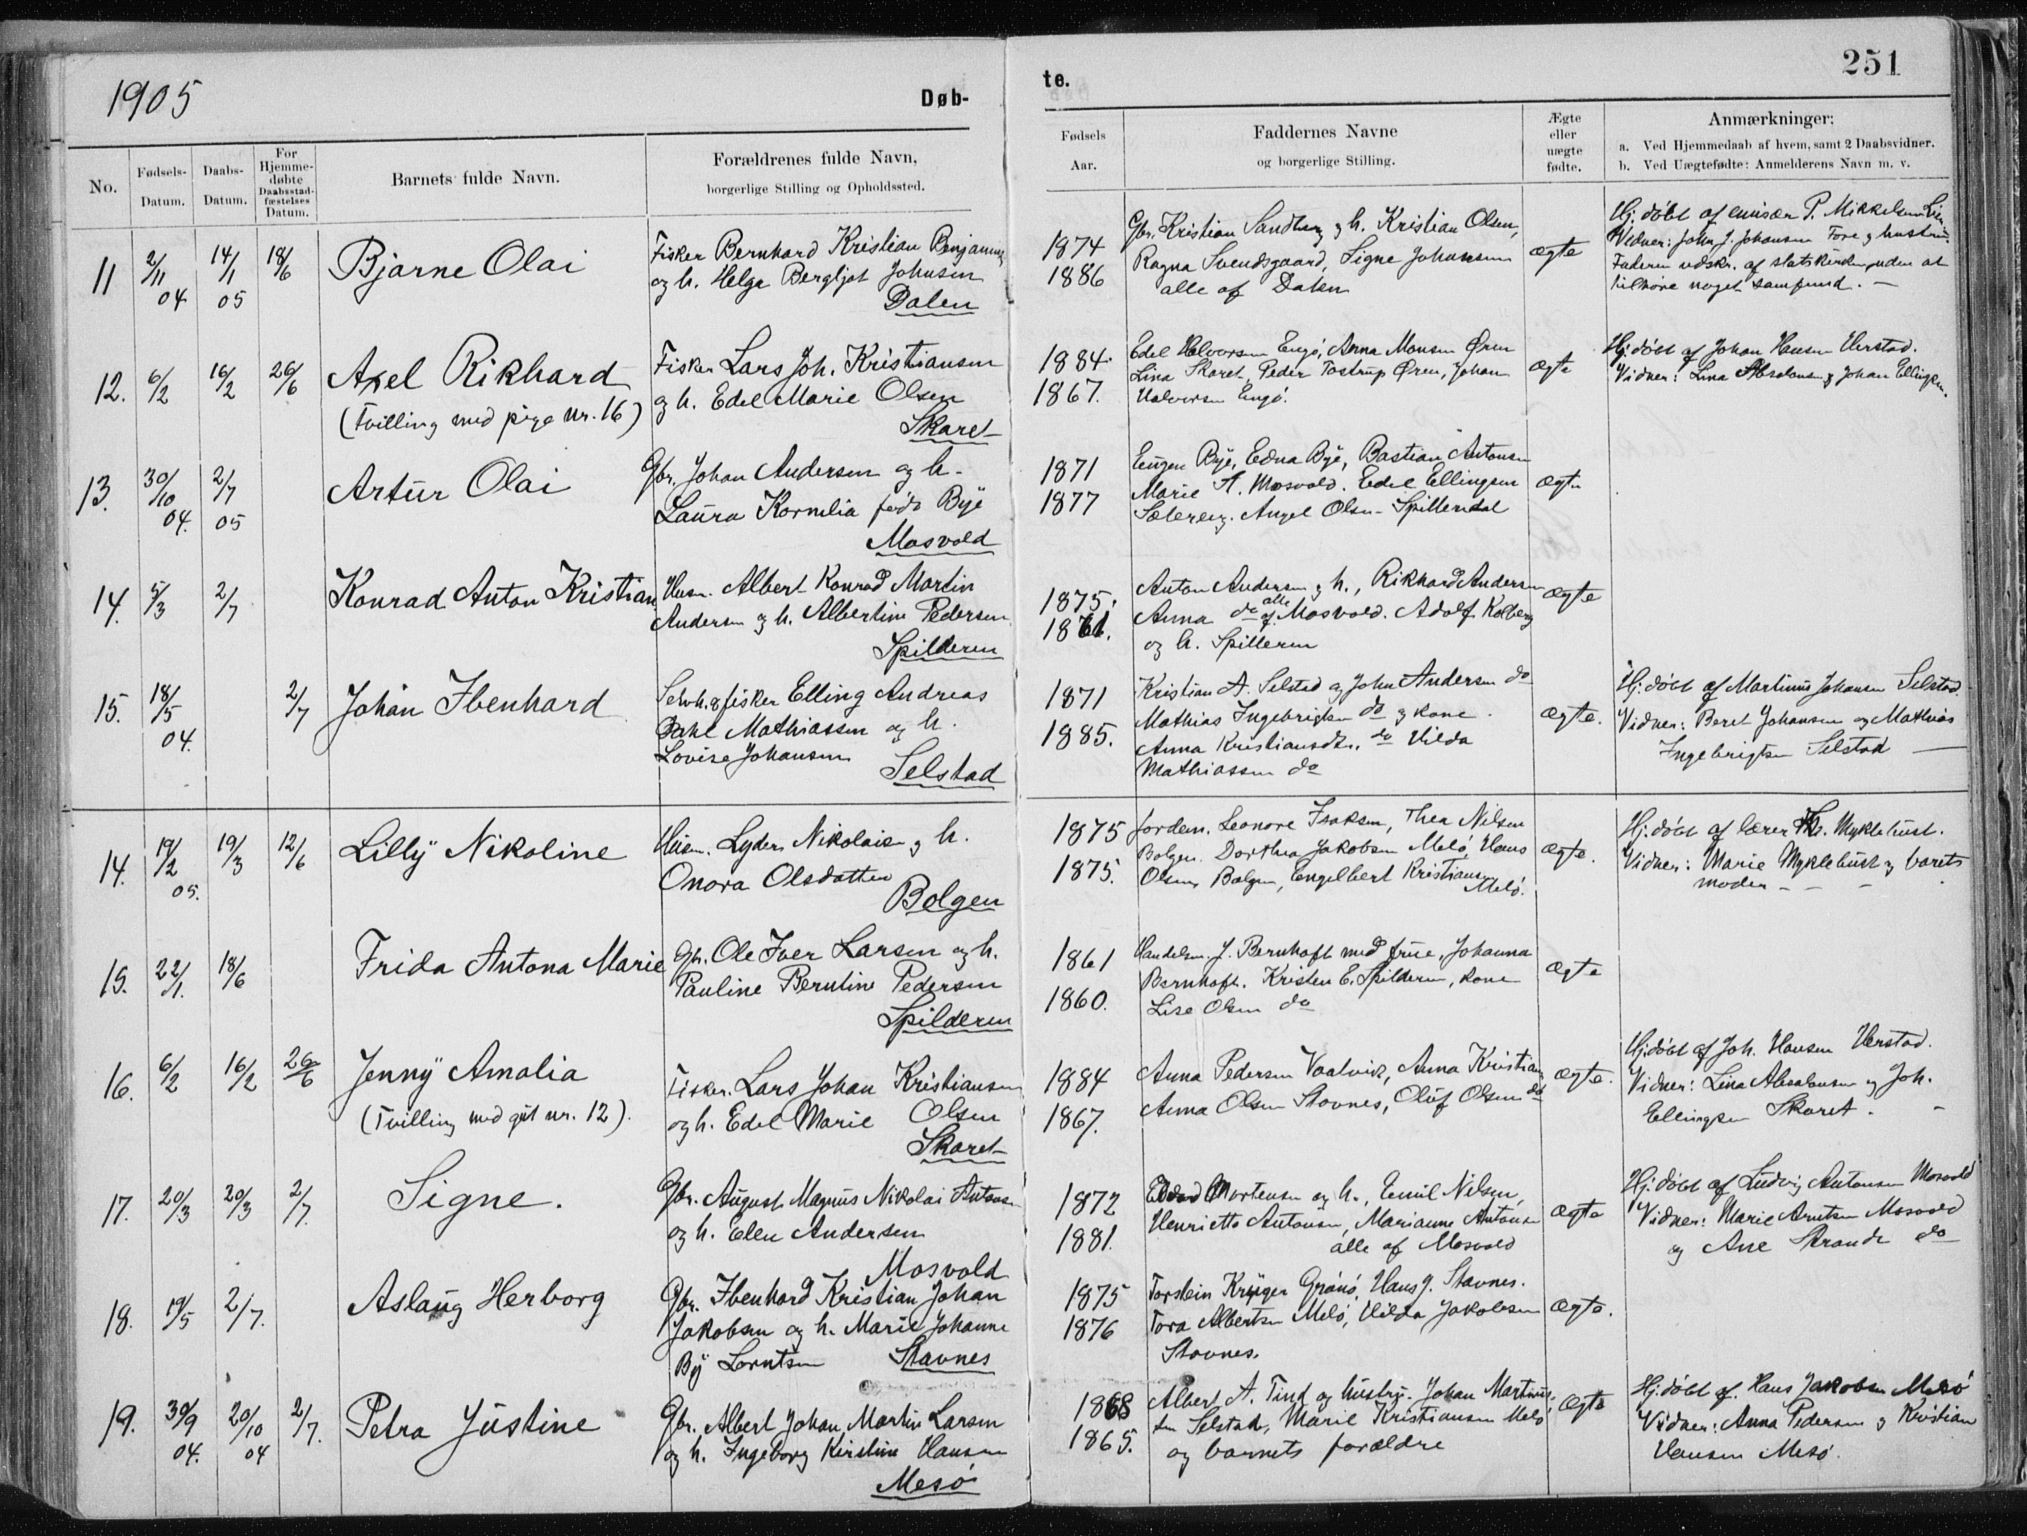 1905
Døb-
No.
Fødsels-
Datum.
Daabs-
Datum.
For
Hjemme-
døbte
Daabsstad-
fæstelses
Datum.
Barnets fulde Navn.
Forældrenes fulde Navn,
borgerlige Stilling og Opholdssted.
11 2/11 04 14/1 05 18/6 Bjarne Olai
Fisker Bernhard Kristian Benjamins
og h. Helga Bergljot Johnsen
Dalen
12. 6/2 16/2 26/6 Axel Rikhard
(Tvilling med pige nr. 16)
Fisker Lars Joh. Kristiansen
og h. Edel Marie Olsen
Skaret
13. 30/10 04. 2/7 05 Artur Olai
Gbr. Johan Andersen og h.
Laura Kornelia født Bye
Mosvold
14. 5/3 2/7 Konrad Anton Kristian
Husm. Albert Konrad Martin
Andersen og h. Albertine Pedersen
Spilderen
15. 18/5 04. 2/7 Johan Ibenhard
Selvh. & fisker Elling Andreas
Dahl Mathiassen og h.
Lovise Johansen
Selstad
14. 19/2 05. 19/3 12/6 Lilly Nikoline
Husm. Lyder Nikolaisen og h.
Onora Olsdatter
Bolgen
15. 22/1. 18/6 Frida Antona Marie
Gbr. Ole Iver Larsen og h.
Pauline Berntine Pedersen
Spilderen
16. 6/2 16/2 26/6 Jenny Amalia
(Tvilling med gut nr. 12).
Fisker. Lars Johan Kristiansen
og h. Edel Marie Olsen
Skaret
17. 20/3 20/3 2/7. Signe.
Gbr. August Magnus Nikolai Antonsen
og h. Elen Andersen
Mosvold
18. 19/5 2/7. Aslaug Herborg
Gbr. Ibenhard Kristian Johan
Jakobsen og h. Marie Johanne
By Lorntsen Stavnes
19. 30/9 04. 20/10 04 2/7. Petra Justine
Gbr. Albert Johan Martin Larsen
og h. Ingeborg Kirstine Hansen
Mesø
te.
251
Fødsels
Aar.
Faddernes Navne
og borgerlige Stilling.
Ægte
eller
uægte
fødte.
Anmærkninger:
a. Ved Hjemmedaab af hvem, samt 2 Daabsvidner.
b. Ved Uægtefødte: Anmelderens Navn m. v.
1874
1886
Gbr. Kristian Sandberg og h. Kristian Olsen,
Ragna Svendsgaard, Signe Johansen
alle af Dalen
ægte
Hj. døbt af emisær P. Mikkelsen
Vidner: John J. Johansen Tore og hustru.
Faderen udskr. af statskirken, uden at
tilhøre noget samfund. —
1884.
1867.
Edel Halvorsen Engø, Anna Monsen Øren
Lina Skaret, Peder Tostrup Øren, Johan
Halvorsen Engø.
ægte
Hj. døbt af Johan Hansen Verstad.
Vidner: Lina Absalonsen og Johan Ellingsen.
1871
1877
Eugen Bye, Edna Bye, Bastian Antonsen
Marie A. Mosvold. Edel Ellingsen
Angel Olsen Spillerdal
ægte
1875.
1861.
Anton Andersen og h., Rikhard Andersen
Anna do alle af Mosvold. Adolf Kolberg
og h. Spilleren
ægte
1871
1885.
Kristian A. Selstad og John Andersen do
Mathias Ingebrigtsen do og kone.
Anna Kristiansdtr. do Hilda
Mathiassen do
ægte.
Hj. døbt af Martinus Johansen Selstad.
Vidner: Beret Johansen og Mathias
Ingebrigtsen Selstad —
1875
1875.
Jordem. Leonore Isaksen, Thea Nilsen
Bolgen. Dorthea Jakobsen Melø, Hans
Olsen Bolgen, Engelbert Kristiansen
Melø.
ægte.
Hj. døbt af lærer Myklebust.
Vidner: Marie Myklebust og barnets
moder - - -
1861
1860.
Handelsm. J. Bernhoft med frue, Johanna
Bernhoft. Kristen E. Spilderen, kone
Lise Olsen do
ægte
1884
1867.
Anna Pedersen Vaalvik, Anna Kristian
Anna Olsen Stavnes, Oluf Olsen do
ægte.
Hj. døbt af Joh. Hansen Verstad.
Vidner: Lina Absalonsen og Joh.
Ellingsen Skaret. -
1872
1881.
Edvard Mortensen og h., Emil Nilsen,
Henriette Antonsen, Marianne Antonsen
alle af Mosvold
ægte
Hj. døbt af Ludvig Antonsen Mosvold
Vidner: Marie Arntsen Mosvold
og Ane Strand do
1875
1876
Torstein Krüger Grønø, Hans J. Stavnes.
Tora Albertsen Melø, Hilda Jakobsen
Stavnes.
ægte.
1868
1865.
Albert A. Tind og hustru. Johan Martinus-
sen Selstad, Marie Kristiansen Melø
og barnets forældre
ægte
Hj. døbt af. Hans Jakobsen Mesø
Vidner: Anna Pedersen og Kristian
Hansen Mesø.